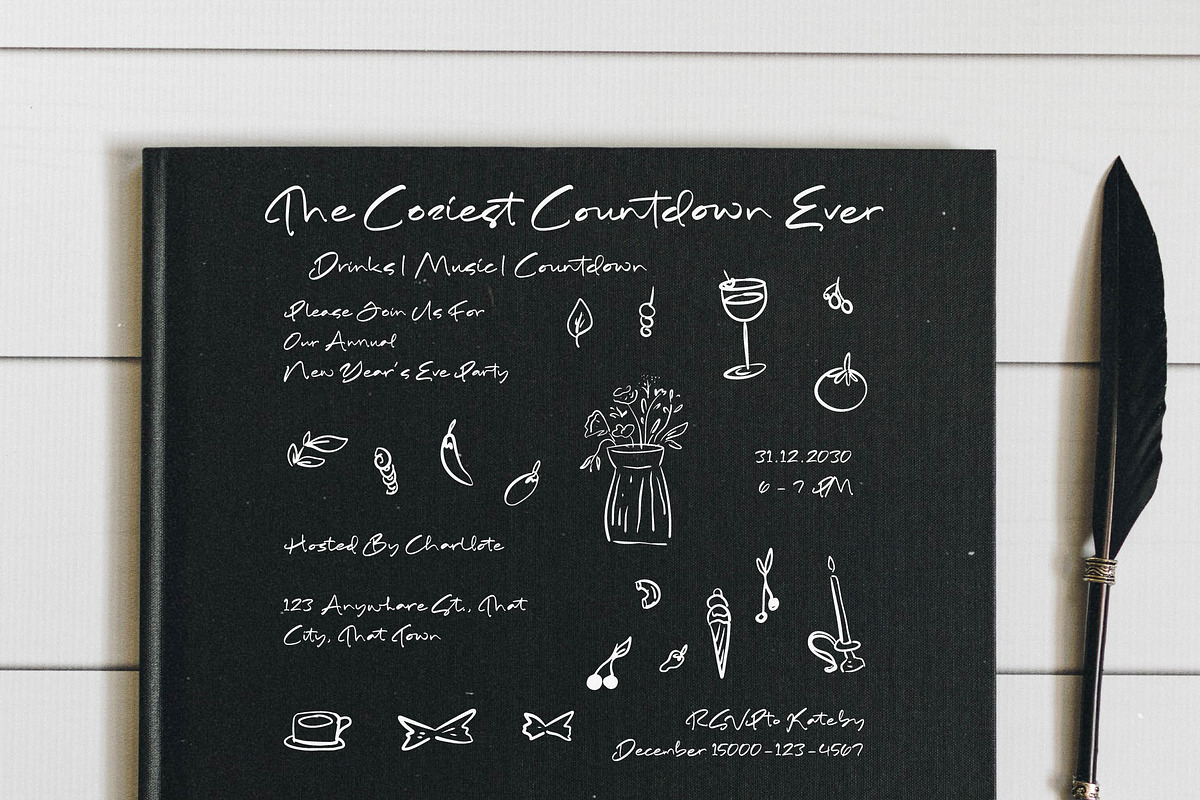 The Coziest Countdown Ever
Drinks| Music| Countdown
Please Join Us For
Our Annual
New Year's Eve Party
31.12.2030
6 - 7 PM
Hosted By Charllote
123 Anywhare St., That
City, That Town
RSVP to Kateby
December 15000-123-4567